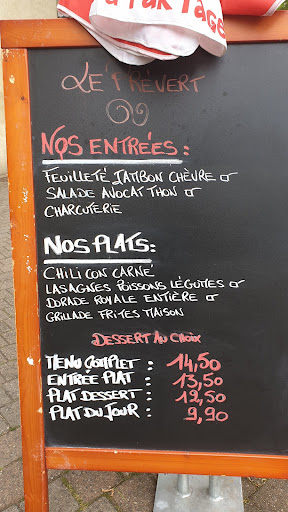 à PARTAGER
LE PRÉVERT
NOS ENTRÉES :
FEUILLETÉ JAMBON CHÈVRE OU
SALADE AVOCAT THON OU
CHARCUTERIE
NOS PLATS :
CHILI CON CARNÉ
LASAGNES POISSONS LÉGUMES OU
DORADE ROYALE ENTIÈRE OU
GRILLADE FRITES MAISON
DESSERT AU CHOIX
MENU COMPLET : 14,50
ENTRÉE PLAT : 13,50
PLAT DESSERT : 12,50
PLAT DU JOUR : 9,90